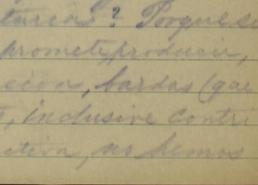 turias? Porque se
promete, producir,
sion, bardas (que
, inclusive contri
ctiva, no hemos